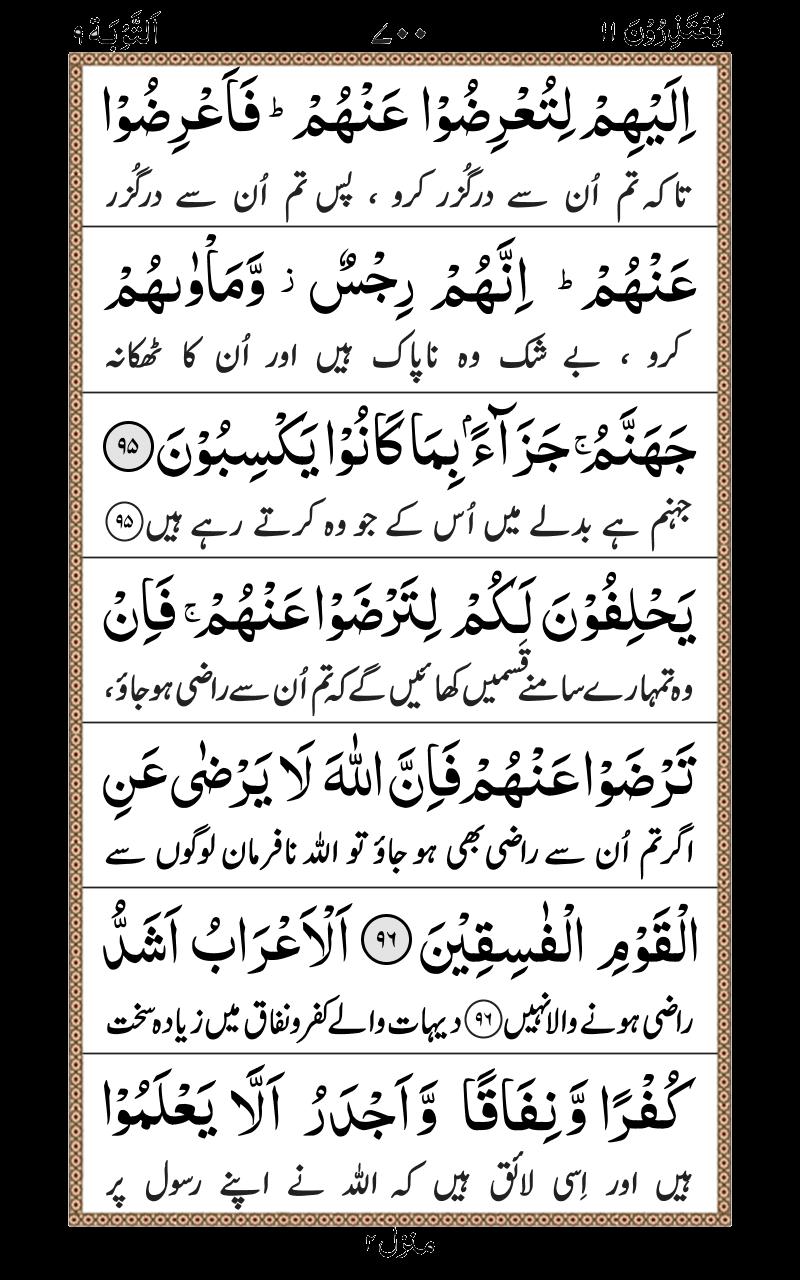 یَعْتَذِرُوْنَ ۱۱ ۷۰۰ اَلتَّوْبَة ۹
اِلَيْهِمْ لِتُعْرِضُوْا عَنْهُمْ ؕ فَاَعْرِضُوْا
تاکہ تم اُن سے درگُزر کرو ، پس تم اُن سے درگُزر
عَنْهُمْ ؕ اِنَّهُمْ رِجْسٌ ز وَّمَاْوٰىهُمْ
کرو ، بے شک وہ ناپاک ہیں اور اُن کا ٹھکانہ
جَهَنَّمُ ۚ جَزَآءًۢ بِمَا كَانُوْا يَكْسِبُوْنَ ۹۵
جہنم ہے بدلے میں اُس کے جو وہ کرتے رہے ہیں ۹۵
يَحْلِفُوْنَ لَكُمْ لِتَرْضَوْا عَنْهُمْ ۚ فَاِنْ
وہ تمہارے سامنے قسمیں کھائیں گے کہ تم اُن سے راضی ہو جاؤ،
تَرْضَوْا عَنْهُمْ فَاِنَّ اللّٰهَ لَا يَرْضٰى عَنِ
اگر تم اُن سے راضی بھی ہو جاؤ تو اللہ نافرمان لوگوں سے
الْقَوْمِ الْفٰسِقِيْنَ ۹۶ اَلْاَعْرَابُ اَشَدُّ
راضی ہونے والا نہیں ۹۶ دیہات والے کفر و نفاق میں زیادہ سخت
كُفْرًا وَّنِفَاقًا وَّاَجْدَرُ اَلَّا يَعْلَمُوْا
ہیں اور اِسی لائق ہیں کہ اللہ نے اپنے رسول پر
منزل ۲